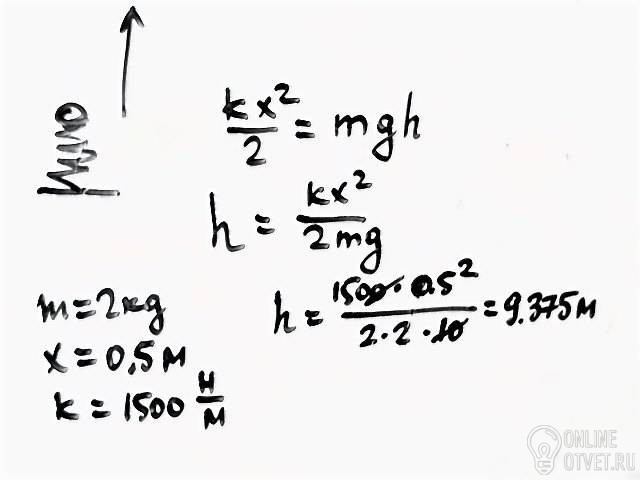 kx²/2 = mgh
h = kx²/2mg
m = 2kg
x = 0,5 м
k = 1500 Н/м
h = 1500 · 0.5²/2 · 2 · 10 = 9.375 м
ONLINE
OTVET.RU